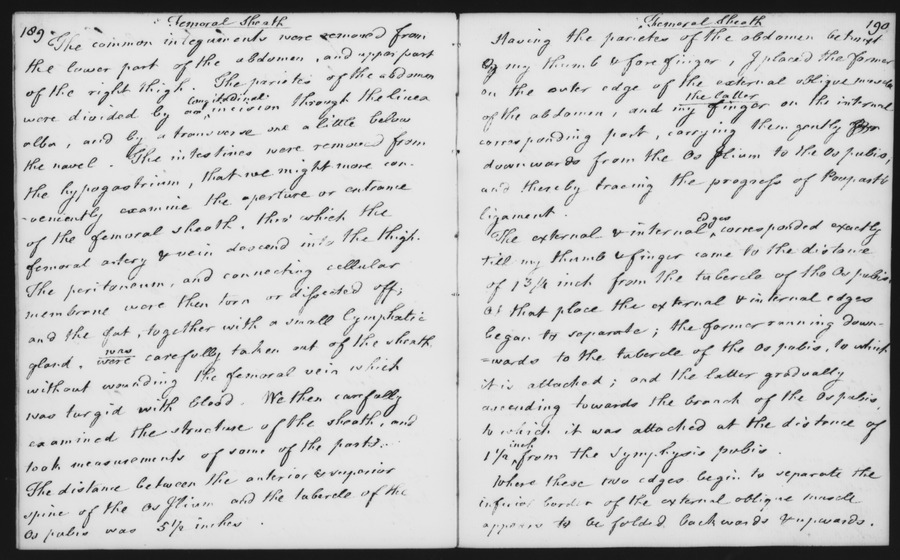 189 Femoral Sheath
The common integuments were removed from
the lower part of the abdomen, and upper part
of the right thigh. The parietes of the abdomen
were divided by an longitudinal incision through the linea
alba, and by a transverse one a little below
the navel. The intestines were removed from
the hypogastrium, that we might more con-
-veniently examine the aperture or entrance
of the femoral sheath, thro' which the
femoral artery & vein descend into the thigh.
The peritoneum, and connecting cellular
membrane were then torn or dissected off;
and the fat, together with a small lymphatic
gland, were was carefully taken out of the sheath
without wounding the femoral vein which
was turgid with blood. We then carefully
examined the structure of the sheath, and
took measurements of some of the parts.
The distance between the anterior & superior
spine of the Os Ilium and the tubercle of the
Os pubis was 5 1/2 inches.
Femoral Sheath 190
Having the parietes of the abdomen betwixt
my thumb & fore finger, I placed the former
on the outer edge of the external oblique muscle
of the abdomen, and my finger the latter on the internal
corresponding part, carrying them gently
downwards from the Os Ilium to the Os pubis,
and thereby tracing the progress of Pouparts
ligament.
The external & internal edges corresponded exactly
till my thumb & finger came to the distance
of 1 3/4 inch from the tubercle of the Os pubis.
At that place the external & internal edges
began to separate; the former running down-
-wards to the tubercle of the Os pubis, to which
it is attached; and the latter gradually
ascending towards the branch of the Os pubis,
to which it was attached at the distance of
1 1/2 inch from the Symphysis pubis.
Where these two edges begin to separate the
inferior border of the external oblique muscle
appears to be folded backwards & upwards.